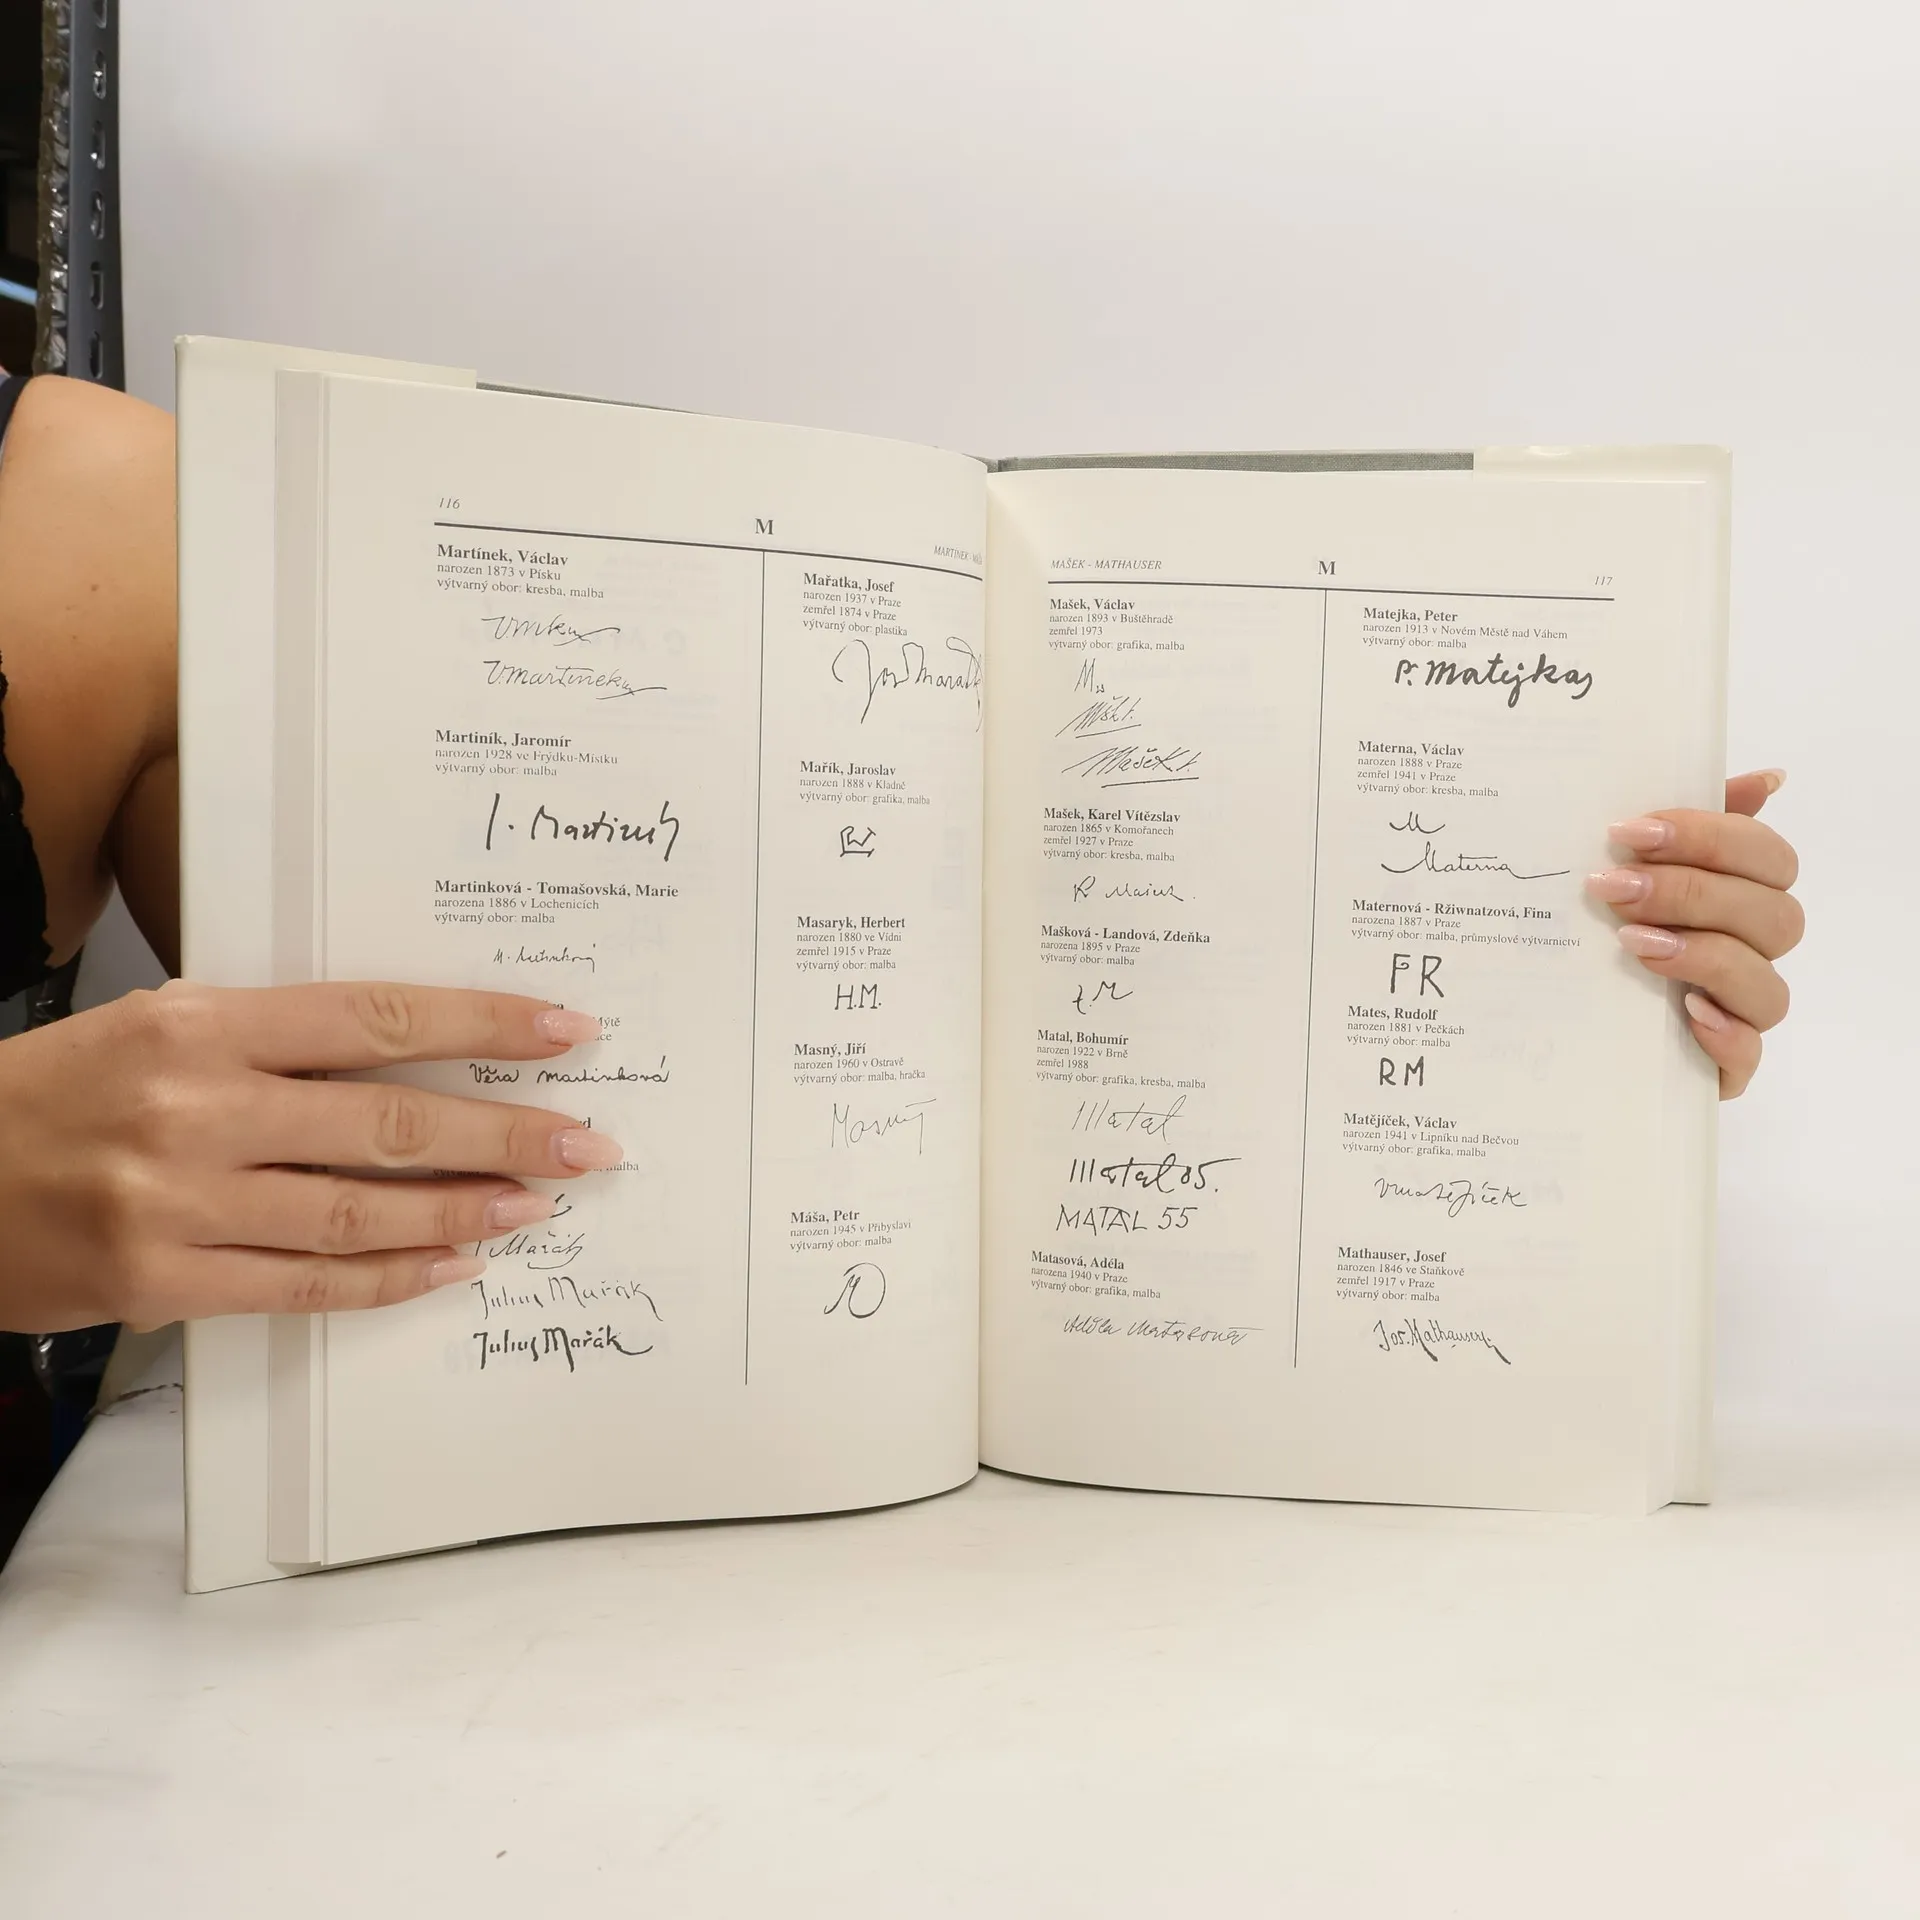 116
M
Martínek, Václav
narozen 1873 v Písku
výtvarný obor: kresba, malba
V. Martínek
Martiník, Jaromír
narozen 1928 ve Frýdku-Místku
výtvarný obor: malba
J. Martiník
Martinková - Tomašovská, Marie
narozena 1886 v Lochenicích
výtvarný obor: malba
M. Martinková
Mýtě
Věra Martinková
malba
Mařák
Julius Mařák
Julius Mařák
MARTÍNEK
Mařatka, Josef
narozen 1937 v Praze
zemřel 1874 v Praze
výtvarný obor: plastika
Mařík, Jaroslav
narozen 1888 v Kladně
výtvarný obor: grafika, malba
Masaryk, Herbert
narozen 1880 ve Vídni
zemřel 1915 v Praze
výtvarný obor: malba
H.M.
Masný, Jiří
narozen 1960 v Ostravě
výtvarný obor: malba, hračka
Masný
Máša, Petr
narozen 1945 v Přibyslavi
výtvarný obor: malba
M
MAŠEK - MATHAUSER
M
117
Mašek, Václav
narozen 1893 v Buštěhradě
zemřel 1973
výtvarný obor: grafika, malba
Mašek
Mašek, Karel Vítězslav
narozen 1865 v Komořanech
zemřel 1927 v Praze
výtvarný obor: kresba, malba
K Mašek.
Mašková - Landová, Zdeňka
narozena 1895 v Praze
výtvarný obor: malba
Z.M
Matal, Bohumír
narozen 1922 v Brně
zemřel 1988
výtvarný obor: grafika, kresba, malba
Matal
Matal 85.
MATAL 55
Matasová, Adéla
narozena 1940 v Praze
výtvarný obor: grafika, malba
Adéla Matasová
Matejka, Peter
narozen 1913 v Novém Městě nad Váhem
výtvarný obor: malba
P. Matejka
Materna, Václav
narozen 1888 v Praze
zemřel 1941 v Praze
výtvarný obor: kresba, malba
M
Materna
Maternová - Ržiwnatzová, Fina
narozena 1887 v Praze
výtvarný obor: malba, průmyslové výtvarnictví
FR
Mates, Rudolf
narozen 1881 v Pečkách
výtvarný obor: malba
RM
Matějíček, Václav
narozen 1941 v Lipníku nad Bečvou
výtvarný obor: grafika, malba
V Matějíček
Mathauser, Josef
narozen 1846 ve Staňkově
zemřel 1917 v Praze
výtvarný obor: malba
Jos. Mathauser